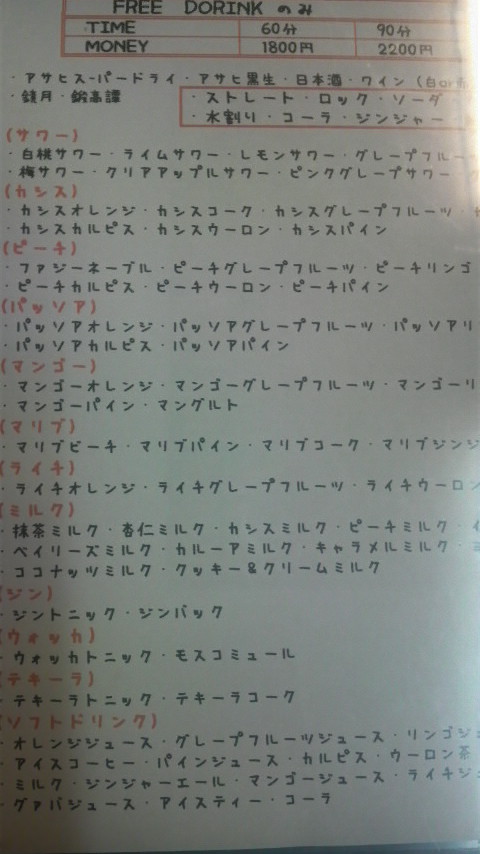 FREE DORINK のみ
TIME 60分 90分
MONEY 1800円 2200円
・アサヒスーパードライ・アサヒ黒生・日本酒・ワイン(白or赤
・鏡月・鍛高譚
・ストレート・ロック・ソーダ
・水割り・コーラ・ジンジャー
(サワー)
・白桃サワー・ライムサワー・レモンサワー・グレープフルー
・梅サワー・クリアアップルサワー・ピンクグレープサワー・
(カシス)
・カシスオレンジ・カシスコーク・カシスグレープフルーツ・
・カシスカルピス・カシスウーロン・カシスパイン
(ピーチ)
・ファジーネーブル・ピーチグレープフルーツ・ピーチリンゴ
・ピーチカルピス・ピーチウーロン・ピーチパイン
(パッソア)
・パッソアオレンジ・パッソアグレープフルーツ・パッソアリ
・パッソアカルピス・パッソアパイン
(マンゴー)
・マンゴーオレンジ・マンゴーグレープフルーツ・マンゴーリ
・マンゴーパイン・マングルト
(マリブ)
・マリブピーチ・マリブパイン・マリブコーク・マリブジンジ
(ライチ)
・ライチオレンジ・ライチグレープフルーツ・ライチウーロン
(ミルク)
・抹茶ミルク・杏仁ミルク・カシスミルク・ピーチミルク・
・ベイリーズミルク・カルーアミルク・キャラメルミルク・
・ココナッツミルク・クッキー&クリームミルク
(ジン)
・ジントニック・ジンバック
(ウォッカ)
・ウォッカトニック・モスコミュール
(テキーラ)
・テキーラトニック・テキーラコーク
(ソフトドリンク)
・オレンジジュース・グレープフルーツジュース・リンゴジュ
・アイスコーヒー・パインジュース・カルピス・ウーロン茶
・ミルク・ジンジャーエール・マンゴージュース・ライチジュ
・グァバジュース・アイスティー・コーラ